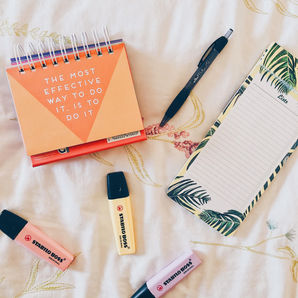 THE MOST
EFFECTIVE
WAY TO DO
IT, IS TO
DO IT
STABILO BOSS
STABILO BOSS
STABILO BOSS